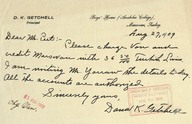 D. K. GETCHELL
Principal
Boys' Home (Anatolia College)
Merzivan, Turkey
Aug 27, 1909
Dear Mr. Peet:-
Please charge Van and
credit Marsovan with 36 Turkish Liras
I am writing Mr. Yarrow the details to-day.
All the accounts are authorized.
Sincerely yours
Dana K. Getchell